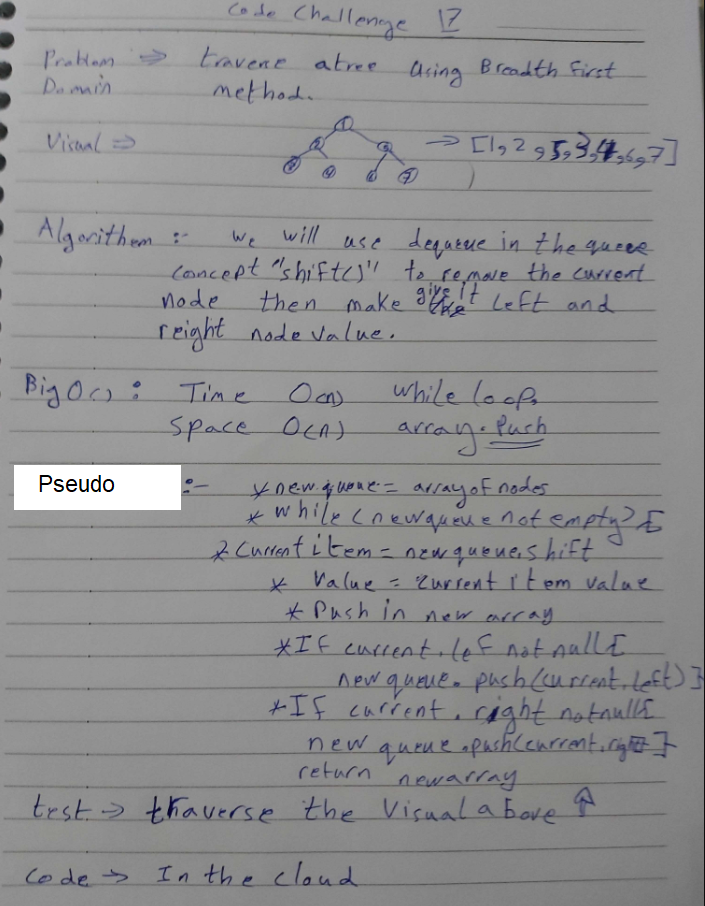 Code Challenge 17
Problem => traverse a tree using Breadth First
Domain method.
Visual => 1 2 5 3 4 6 7 -> [1,2,5,3,4,6,7]
Algorithem :- we will use dequeue in the queue
concept "shift()" to remove the current
node then make give it left and
reight node value.
Big O() : Time O(n) while loop.
Space O(n) array.push
Pseudo :- * new queue = array of nodes
* while (newqueue not empty) {
* Current item = newqueue.shift
* Value = current item value
* Push in new array
* If current.lef not null {
newqueue.push(current.left) }
* If current.right notnull {
new queue.push(current.right }
return newarray
test -> traverse the Visual above ↑
Code -> In the cloud